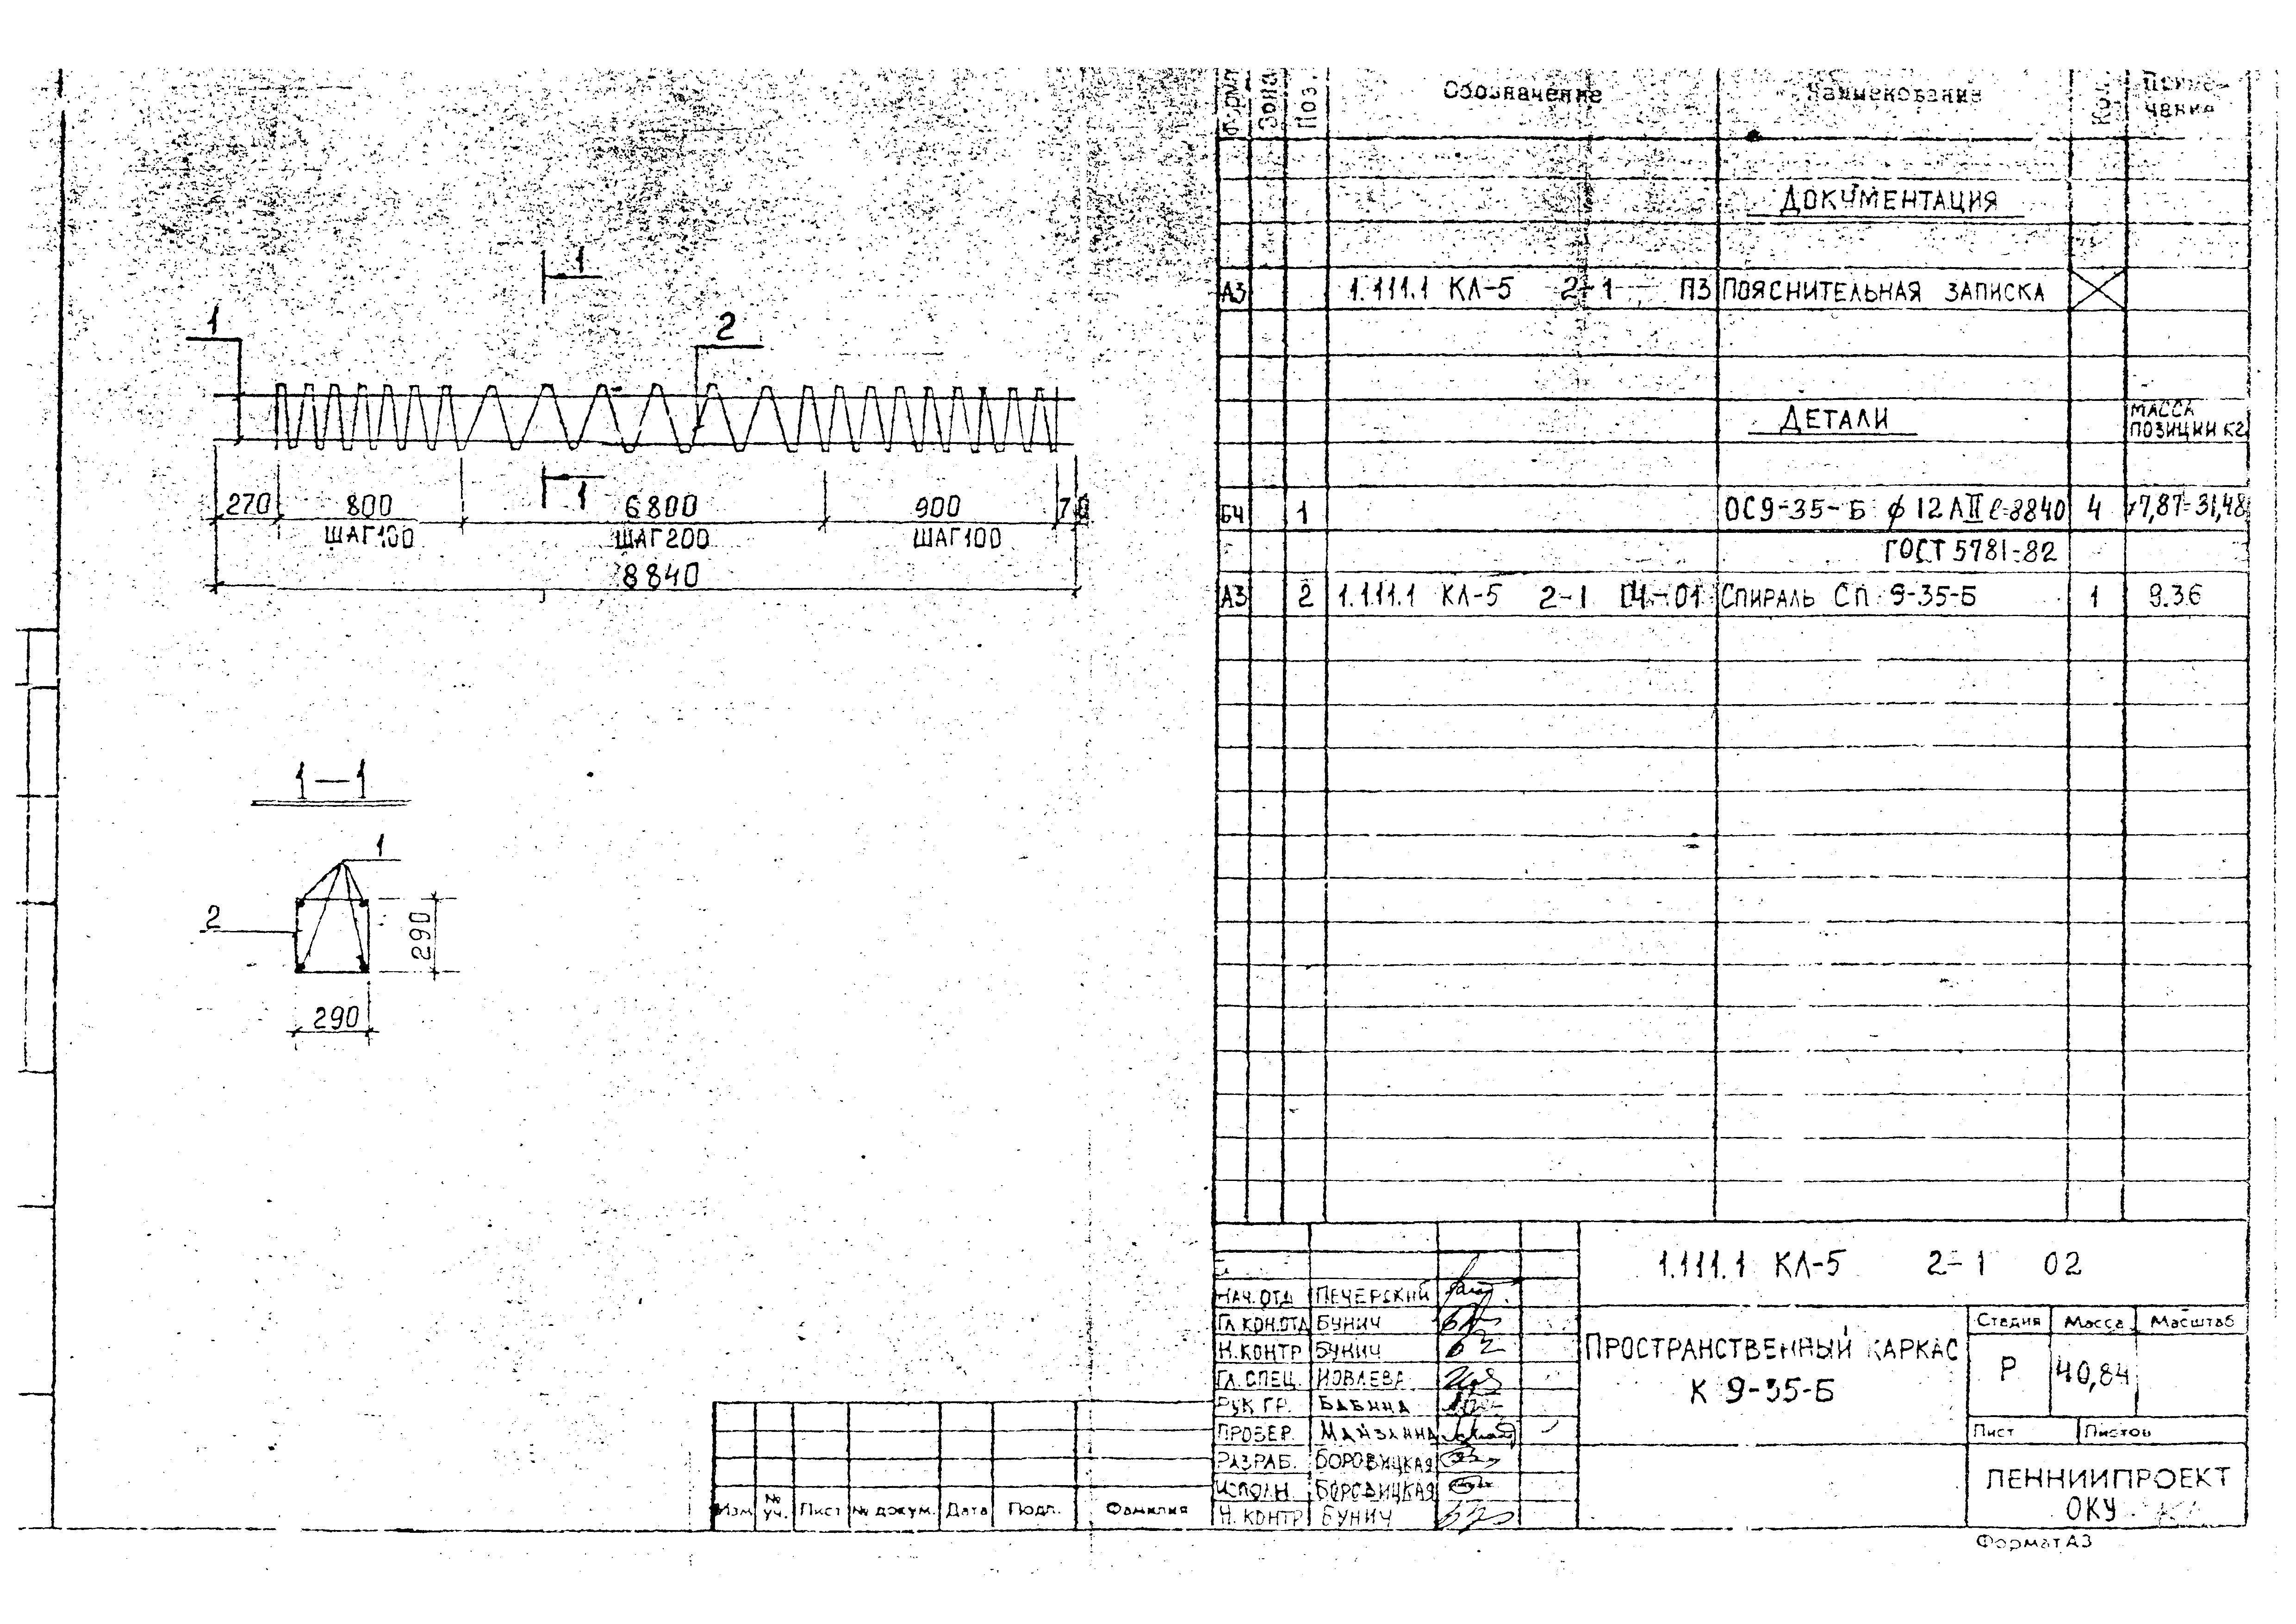 1
1
2
270 800 6800 900 70
ШАГ100 ШАГ200 ШАГ100
8840
1
1–1
1
2
290
290
Зона Поз. Обозначение Наименование Кол. Приме-
чание
ДОКУМЕНТАЦИЯ
А3 1.111.1 КЛ-5 2-1 ПЗ ПОЯСНИТЕЛЬНАЯ ЗАПИСКА
ДЕТАЛИ МАССА
ПОЗИЦИИ КГ
БЧ 1 ОС9-35-Б ϕ 12 АII ℓ=8840 4 ×7,87=31,48
ГОСТ 5781-82
А3 2 1.111.1 КЛ-5 2-1 -01 СПИРАЛЬ СП 9-35-Б 1 9.36
1.111.1 КЛ-5 2-1 02
НАЧ.ОТД ПЕЧЕРСКИЙ
ГЛ.КОН.ОТД БУНИЧ
Н.КОНТР БУНИЧ
ГЛ.СПЕЦ.
РУК.ГР. БАБИНА
ПРОВЕР.
РАЗРАБ. БОРОВИЦКАЯ
ИСПОЛН. БОРОВИЦКАЯ
Н.КОНТР БУНИЧ
ПРОСТРАНСТВЕННЫЙ КАРКАС
К 9-35-Б
Стадия Масса Масштаб
Р 40,84
Лист Листов
ЛЕННИИПРОЕКТ
ОКУ
Изм № уч. Лист № докум. Дата Подп. Фамилия
Формат А3